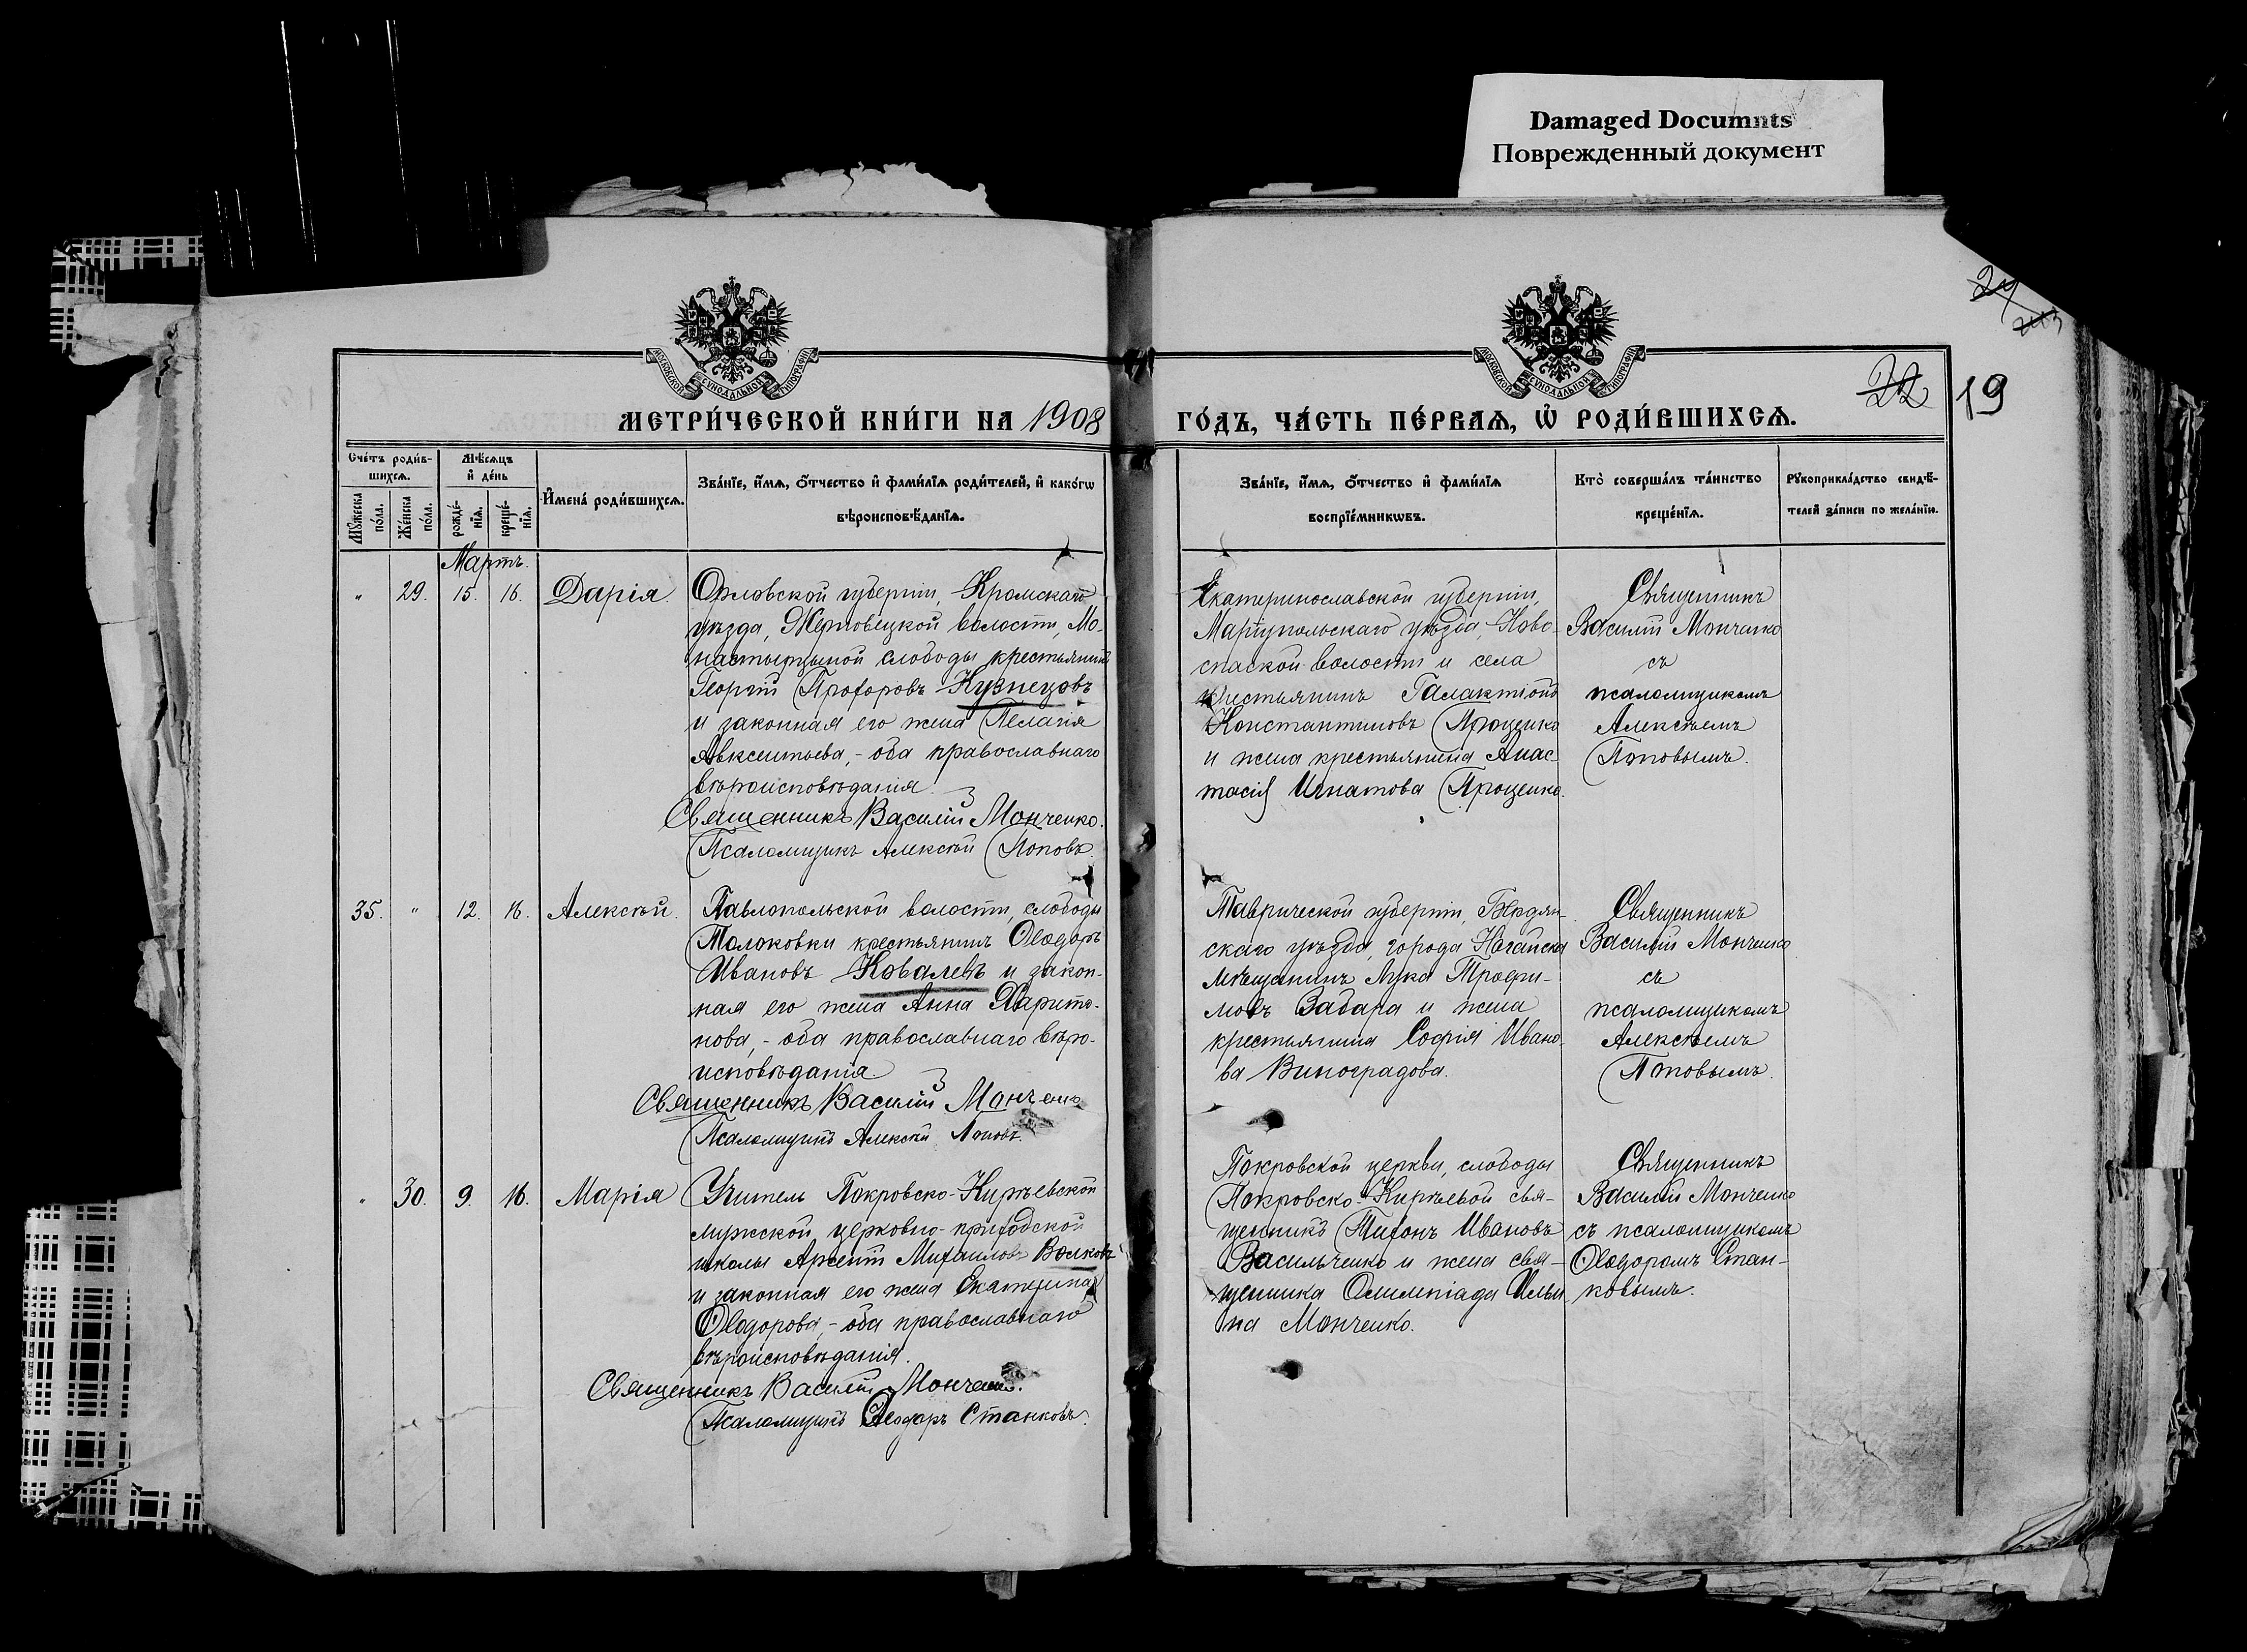 Damaged Documnts
Поврежденный документ
МОСКОВСКОЙ СУНОДАЛЬНОЙ ТИПОГРАФІИ
МОСКОВСКОЙ СУНОДАЛЬНОЙ ТИПОГРАФІИ
22
19
МЕТРИ́ЧЕСКОЙ КНИ́ГИ НА 1908
ГО́ДЪ, ЧА́СТЬ ПЕ́РВАѦ, Ѡ҆ РОДИ́ВШИХСѦ.
Сче́тъ роди́в-
шихсѧ.
Мѣ́сѧцъ
и҆ де́нь
Мꙋ́жеска по́ла.
Же́нска по́ла.
рожде́-
нїѧ.
креще́-
нїѧ.
И҆мена̀ роди́вшихсѧ.
Зва́нїе, и҆́мѧ, ѻ҆́тчество и҆ фами́лїѧ роди́телей, и҆ како́гѡ
вѣроисповѣ́данїѧ.
Зва́нїе, и҆́мѧ, ѻ҆́тчество и҆ фами́лїѧ
воспрїе́мникѡвъ.
Кто̀ соверша́лъ та́инство
креще́нїѧ.
Рꙋкоприкла́дство свидѣ́-
телей за́писи по жела́нїю.
Мартъ.
" 29. 15. 16. Дарія
Орловской губерніи, Кромскаго
уѣзда, Жерновецкой волости, Мо-
настырщиной слободы крестьянинъ
Георгій Прохоровъ Кузнецовъ
и законная его жена Пелагія
Авксентьева, - оба православнаго
вѣроисповѣданія.
Священникъ Василій Монченко.
Псаломщикъ Алексѣй Поповъ.
Екатеринославской губерніи,
Маріупольскаго уѣзда, Ново-
спаской волости и села
крестьянинъ Галактіонъ
Константиновъ Проценко
и жена крестьянина Анас-
тасія Игнатова Проценко.
Священникъ
Василій Монченко
съ
псаломщикомъ
Алексѣемъ
Поповымъ.
35. " 12. 16. Алексѣй.
Павлопольской волости, слободы
Толоковки крестьянинъ Ѳеодоръ
Ивановъ Ковалевъ и закон-
ная его жена Анна Харито-
нова, - оба православнаго вѣро-
исповѣданія.
Священникъ Василій Монченко
Псаломщикъ Алексѣй Поповъ.
Таврической губерніи, Бердян-
скаго уѣзда, города Ногайска
мѣщанинъ Лука Трофи-
мовъ Забара и жена
крестьянина Софія Ивано-
ва Виноградова.
Священникъ
Василій Монченко
съ
псаломщикомъ
Алексѣемъ
Поповымъ.
" 30. 9. 16. Марія
Учитель Покровско-Кирѣевской
мужской церковно-приходской
школы Арсеній Михаиловъ Волковъ
и законная его жена Екатерина
Ѳеодорова, - оба православнаго
вѣроисповѣданія.
Священникъ Василій Монченко.
Псаломщикъ Ѳеодоръ Станковъ.
Покровской церкви, слободы
Покровско-Кирѣевой свя-
щенникъ Тихонъ Ивановъ
Васильченко и жена свя-
щенника Олимпіада Ильи-
на Монченко.
Священникъ
Василій Монченко
съ псаломщикомъ
Ѳеодоромъ Стан-
ковымъ.